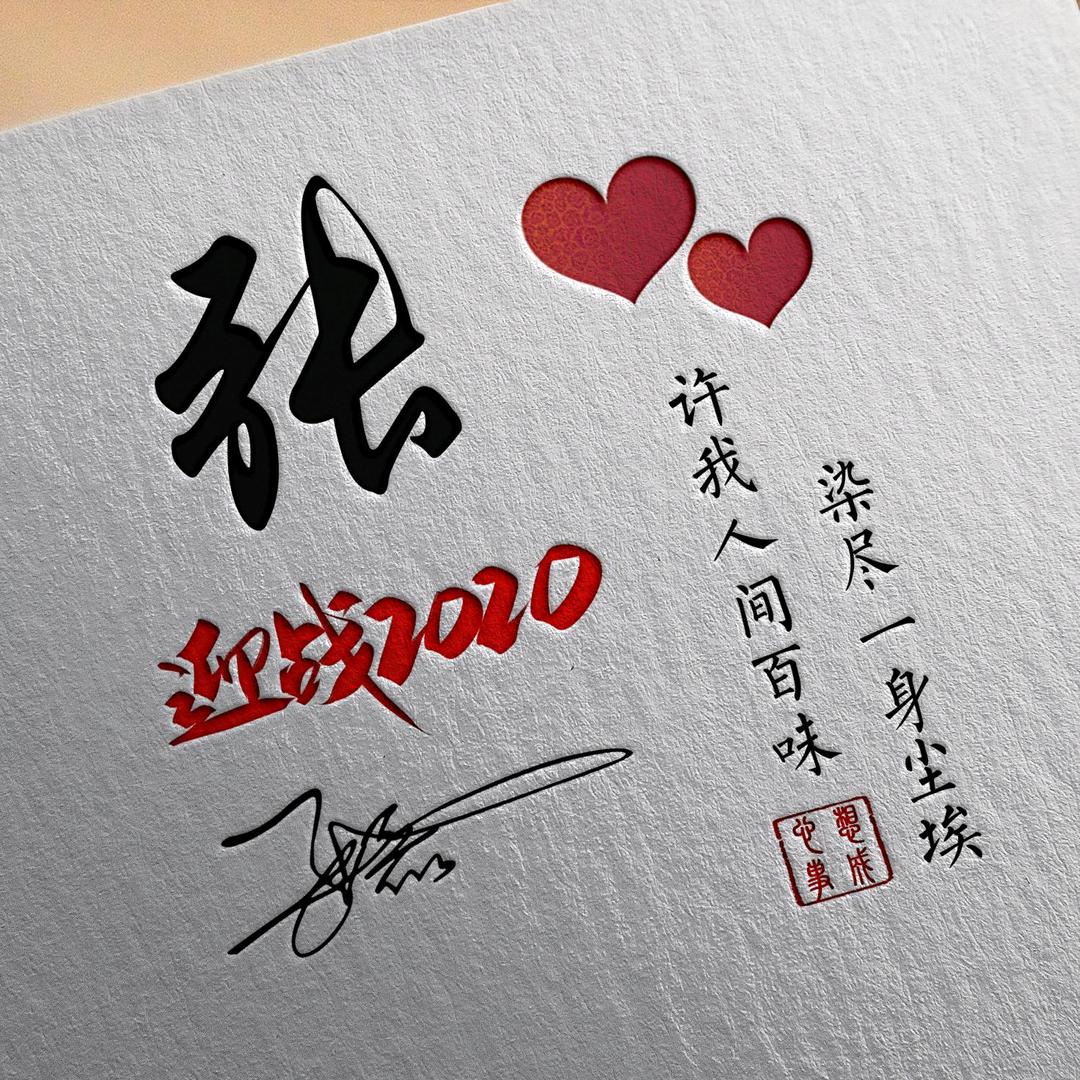 张
迎战2020
许我人间百味
染尽一身尘埃
心想
事成